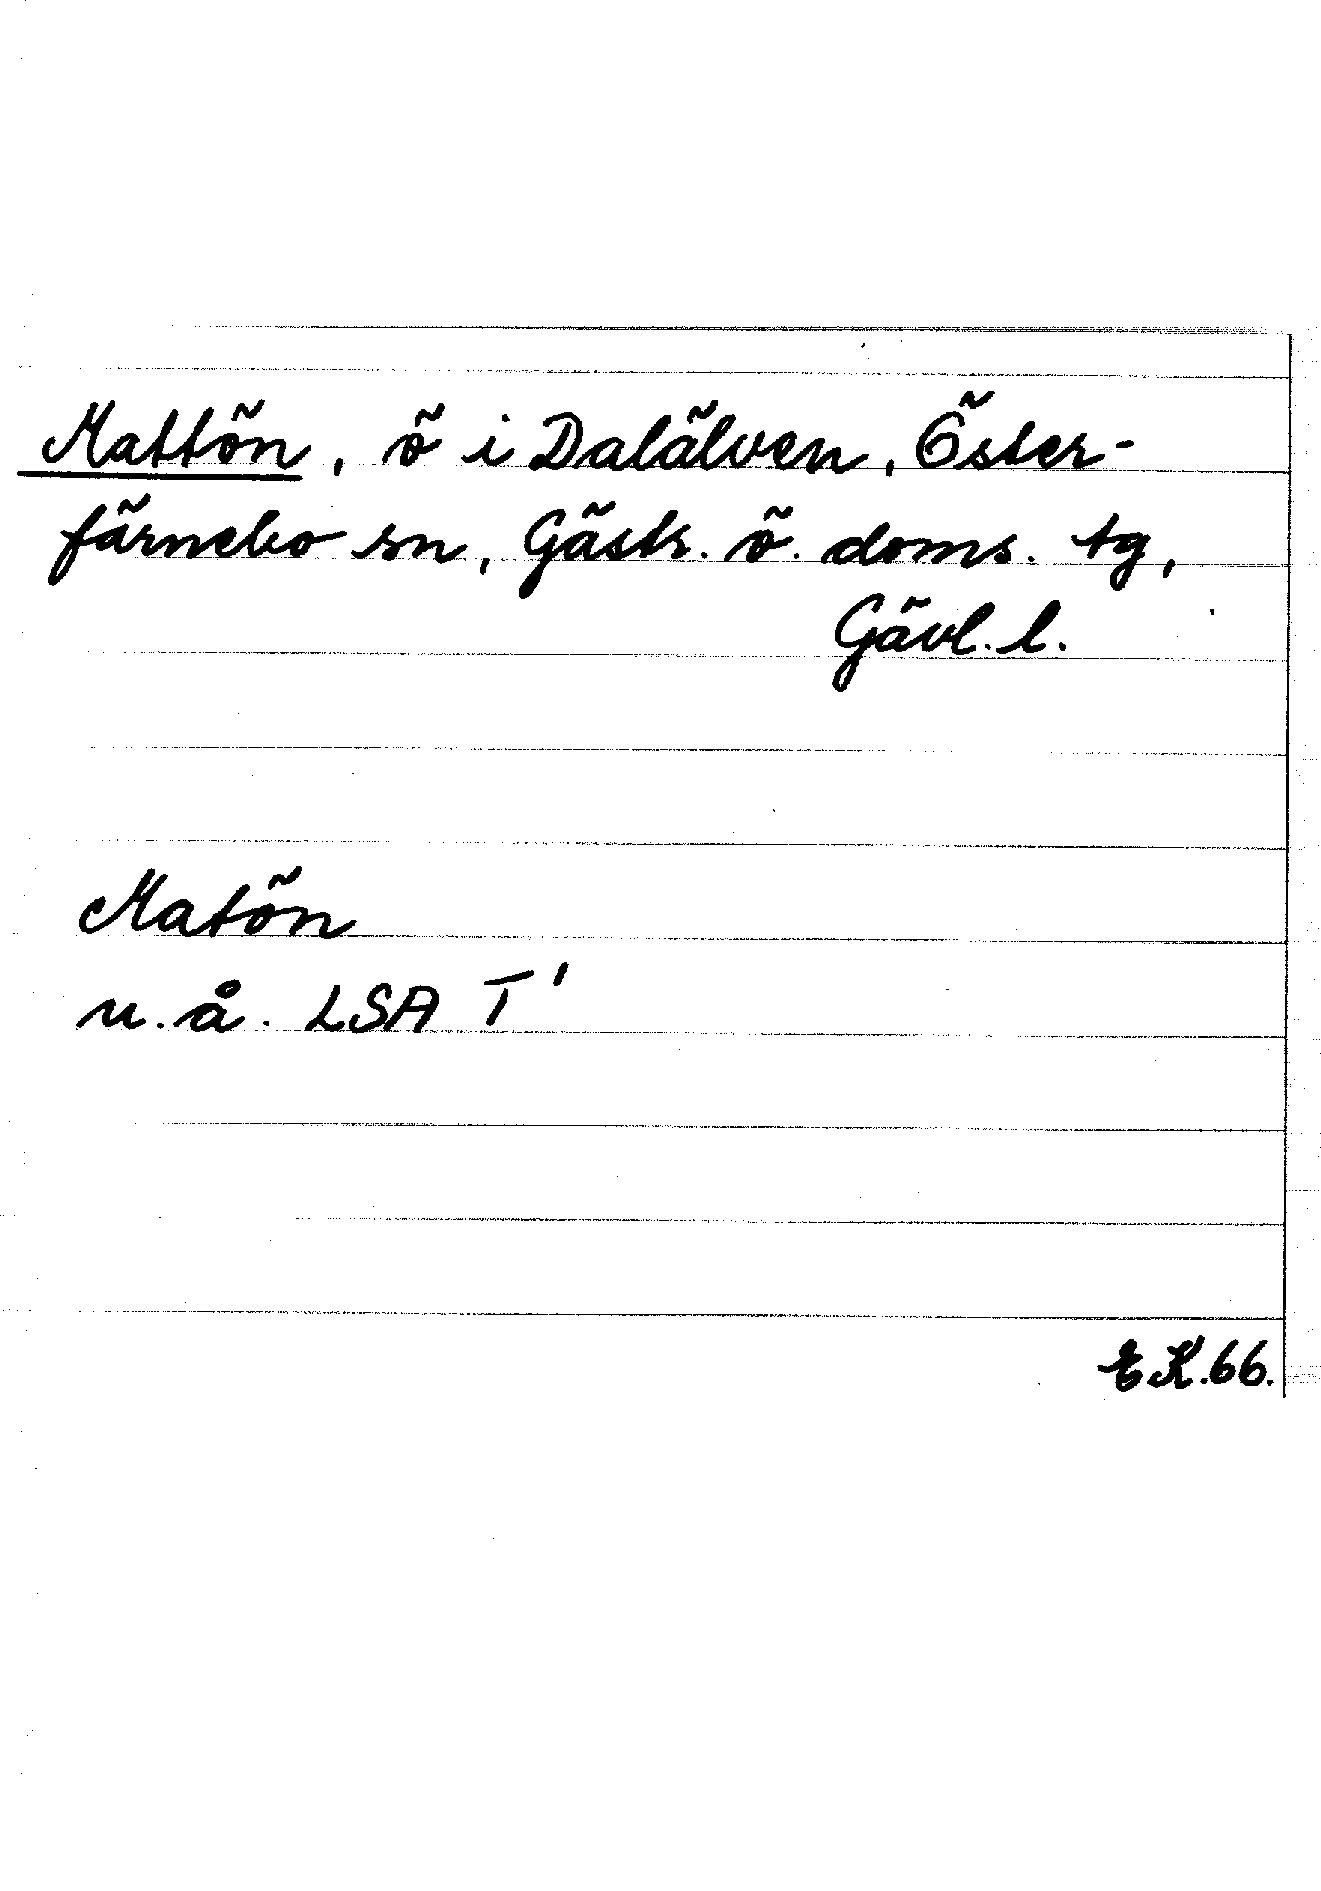 Mattön, ö i Dalälven, Öster-
färnebo sn, Gästr. ö. doms. tg,
Gävl. l.
Matön
u. å. LSA T'
EK. 66.